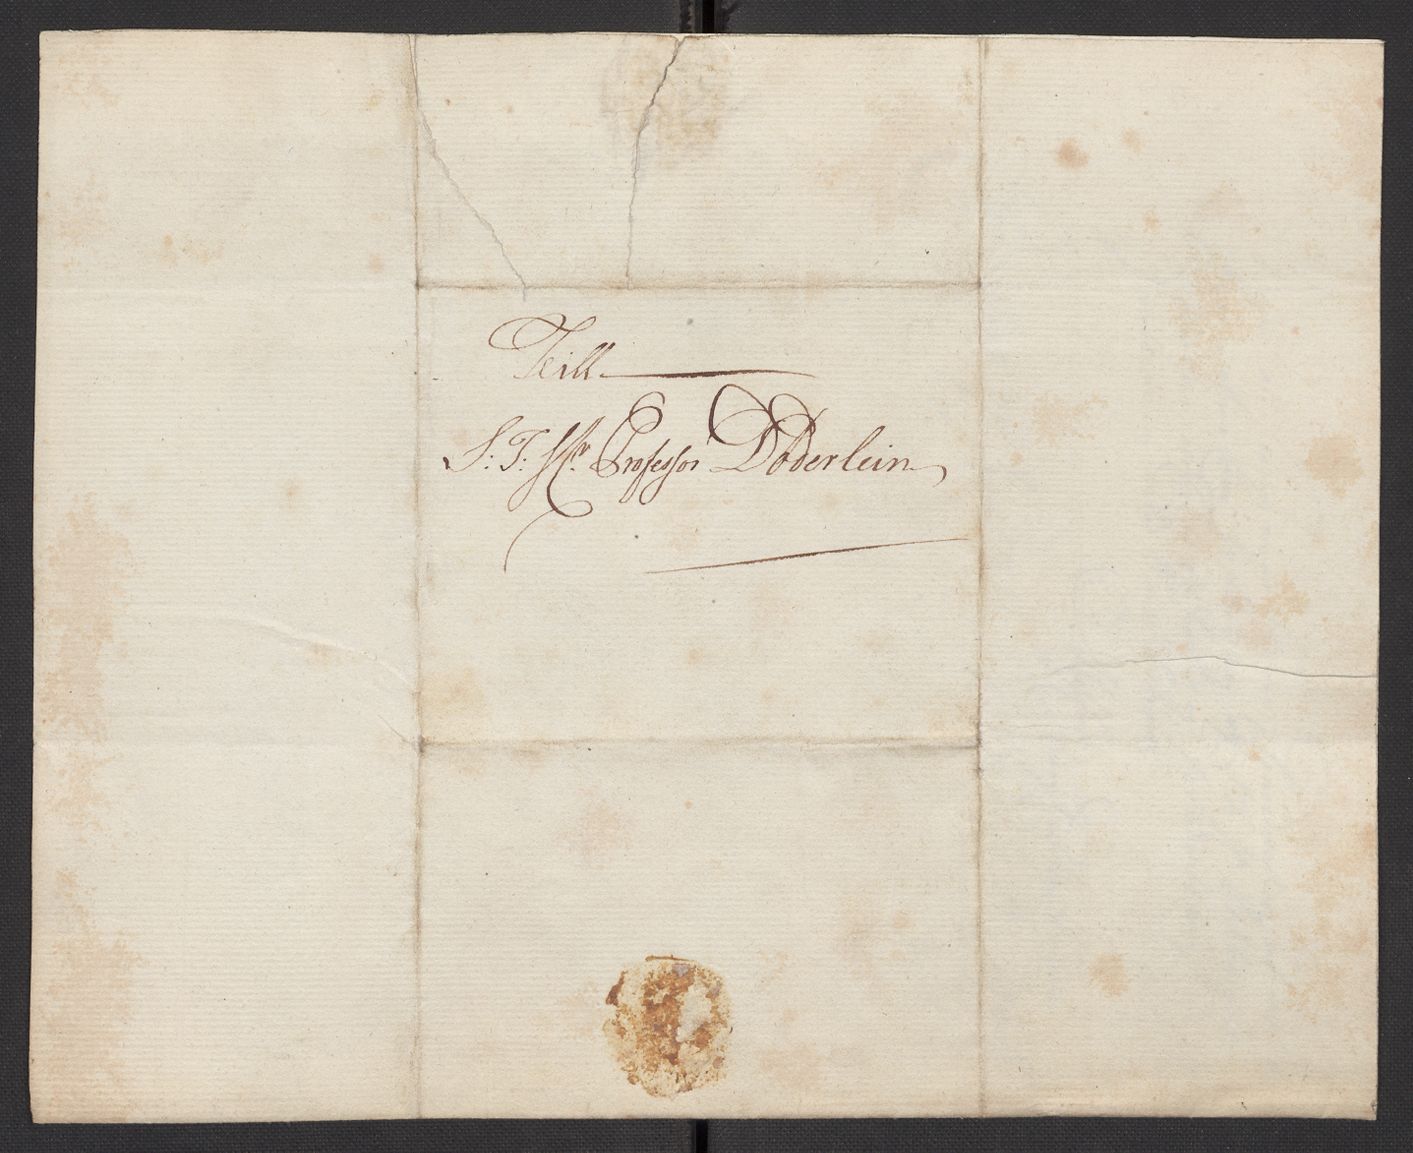 Till
S: T: Hr: Professor Döderlein